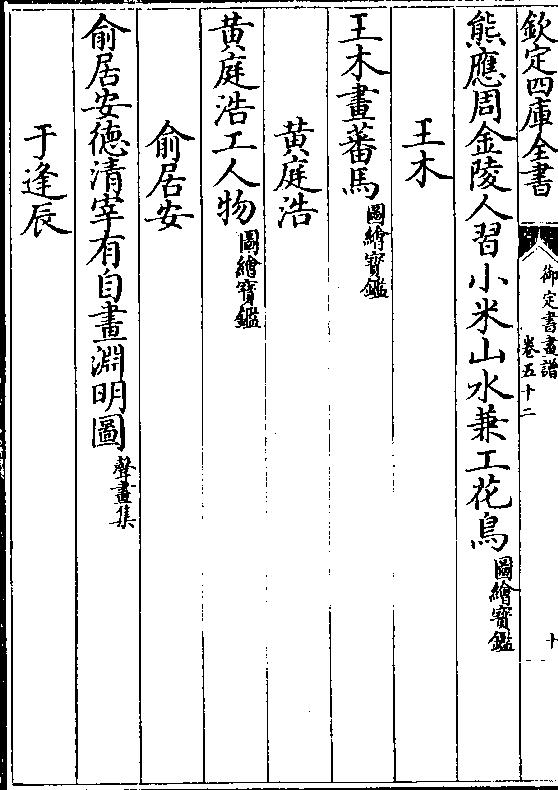 欽定四庫全書
御定書畫譜
卷五十二
十
熊應周金陵人習小米山水兼工花鳥圖繪寶鑑
王木
王木畫蕃馬圖繪寶鑑
黃庭浩
黃庭浩工人物圖繪寶鑑
俞居安
俞居安德清宰有自畫淵明圖聲畫集
于逢辰